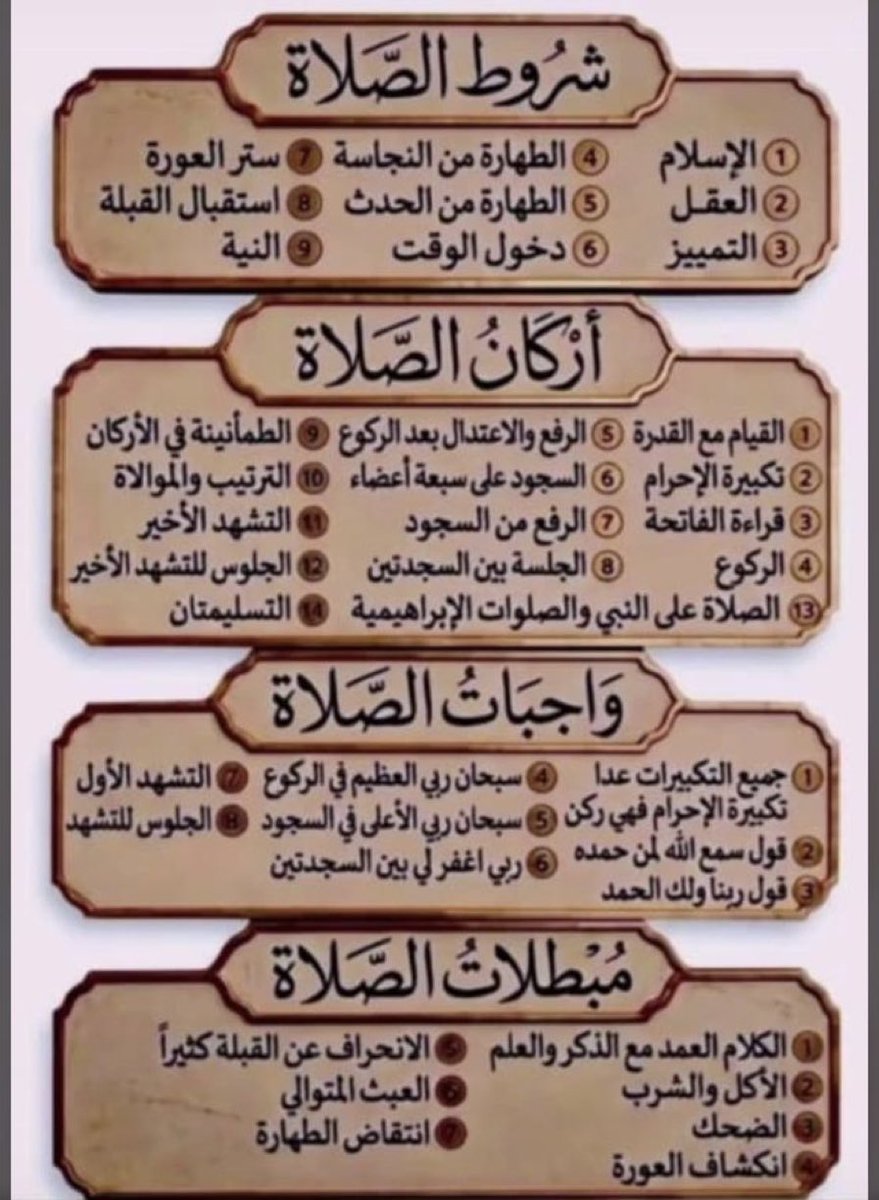 شُرُوط الصَّلاة
① الإسلام ④ الطهارة من النجاسة ⑦ ستر العورة
② العقل ⑤ الطهارة من الحدث ⑧ استقبال القبلة
③ التمييز ⑥ دخول الوقت ⑨ النية
أَرْكَانُ الصَّلاة
① القيام مع القدرة ⑤ الرفع والاعتدال بعد الركوع ⑨ الطمأنينة في الأركان
② تكبيرة الإحرام ⑥ السجود على سبعة أعضاء ⑩ الترتيب والموالاة
③ قراءة الفاتحة ⑦ الرفع من السجود ⑪ التشهد الأخير
④ الركوع ⑧ الجلسة بين السجدتين ⑫ الجلوس للتشهد الأخير
⑬ الصلاة على النبي والصلوات الإبراهيمية ⑭ التسليمتان
وَاجِبَاتُ الصَّلاة
① جميع التكبيرات عدا ④ سبحان ربي العظيم في الركوع ⑦ التشهد الأول
تكبيرة الإحرام فهي ركن ⑤ سبحان ربي الأعلى في السجود ⑧ الجلوس للتشهد
② قول سمع الله لمن حمده ⑥ ربي اغفر لي بين السجدتين
③ قول ربنا ولك الحمد
مُبْطِلاتُ الصَّلاة
① الكلام العمد مع الذكر والعلم ⑤ الانحراف عن القبلة كثيراً
② الأكل والشرب ⑥ العبث المتوالي
③ الضحك ⑦ انتقاض الطهارة
④ انكشاف العورة